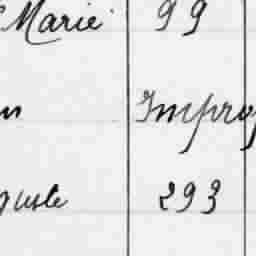 Marie 99
Improp
guste 293